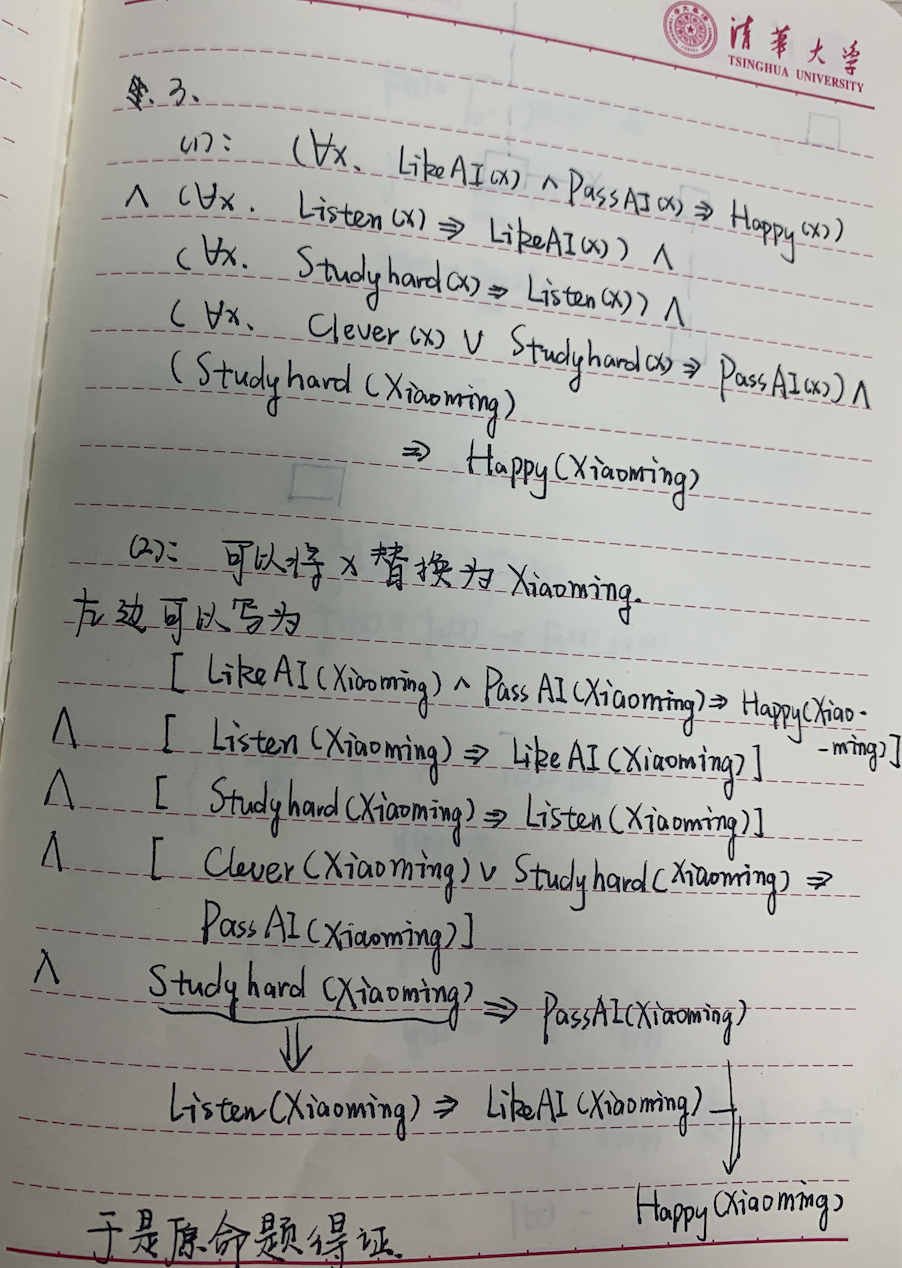 清华大学
TSINGHUA UNIVERSITY
3、
(1): (∀x. LikeAI(x) ∧ PassAI(x) ⇒ Happy(x))
∧ (∀x. Listen(x) ⇒ LikeAI(x)) ∧
(∀x. Studyhard(x) ⇒ Listen(x)) ∧
(∀x. Clever(x) ∨ Studyhard(x) ⇒ PassAI(x)) ∧
(Studyhard(Xiaoming)
⇒ Happy(Xiaoming)
(2): 可以将x替换为Xiaoming.
左边可以写为
[ LikeAI(Xiaoming) ∧ PassAI(Xiaoming) ⇒ Happy(Xiao-
-ming)]
∧ [ Listen(Xiaoming) ⇒ LikeAI(Xiaoming)]
∧ [ Studyhard(Xiaoming) ⇒ Listen(Xiaoming)]
∧ [ Clever(Xiaoming) ∨ Studyhard(Xiaoming) ⇒
PassAI(Xiaoming)]
∧ Studyhard(Xiaoming) ⇒ PassAI(Xiaoming)
⇓
Listen(Xiaoming) ⇒ LikeAI(Xiaoming)
Happy(Xiaoming)
于是原命题得证.